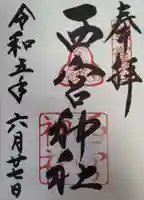 奉拝
西宮神社
令和五年
六月廿七日